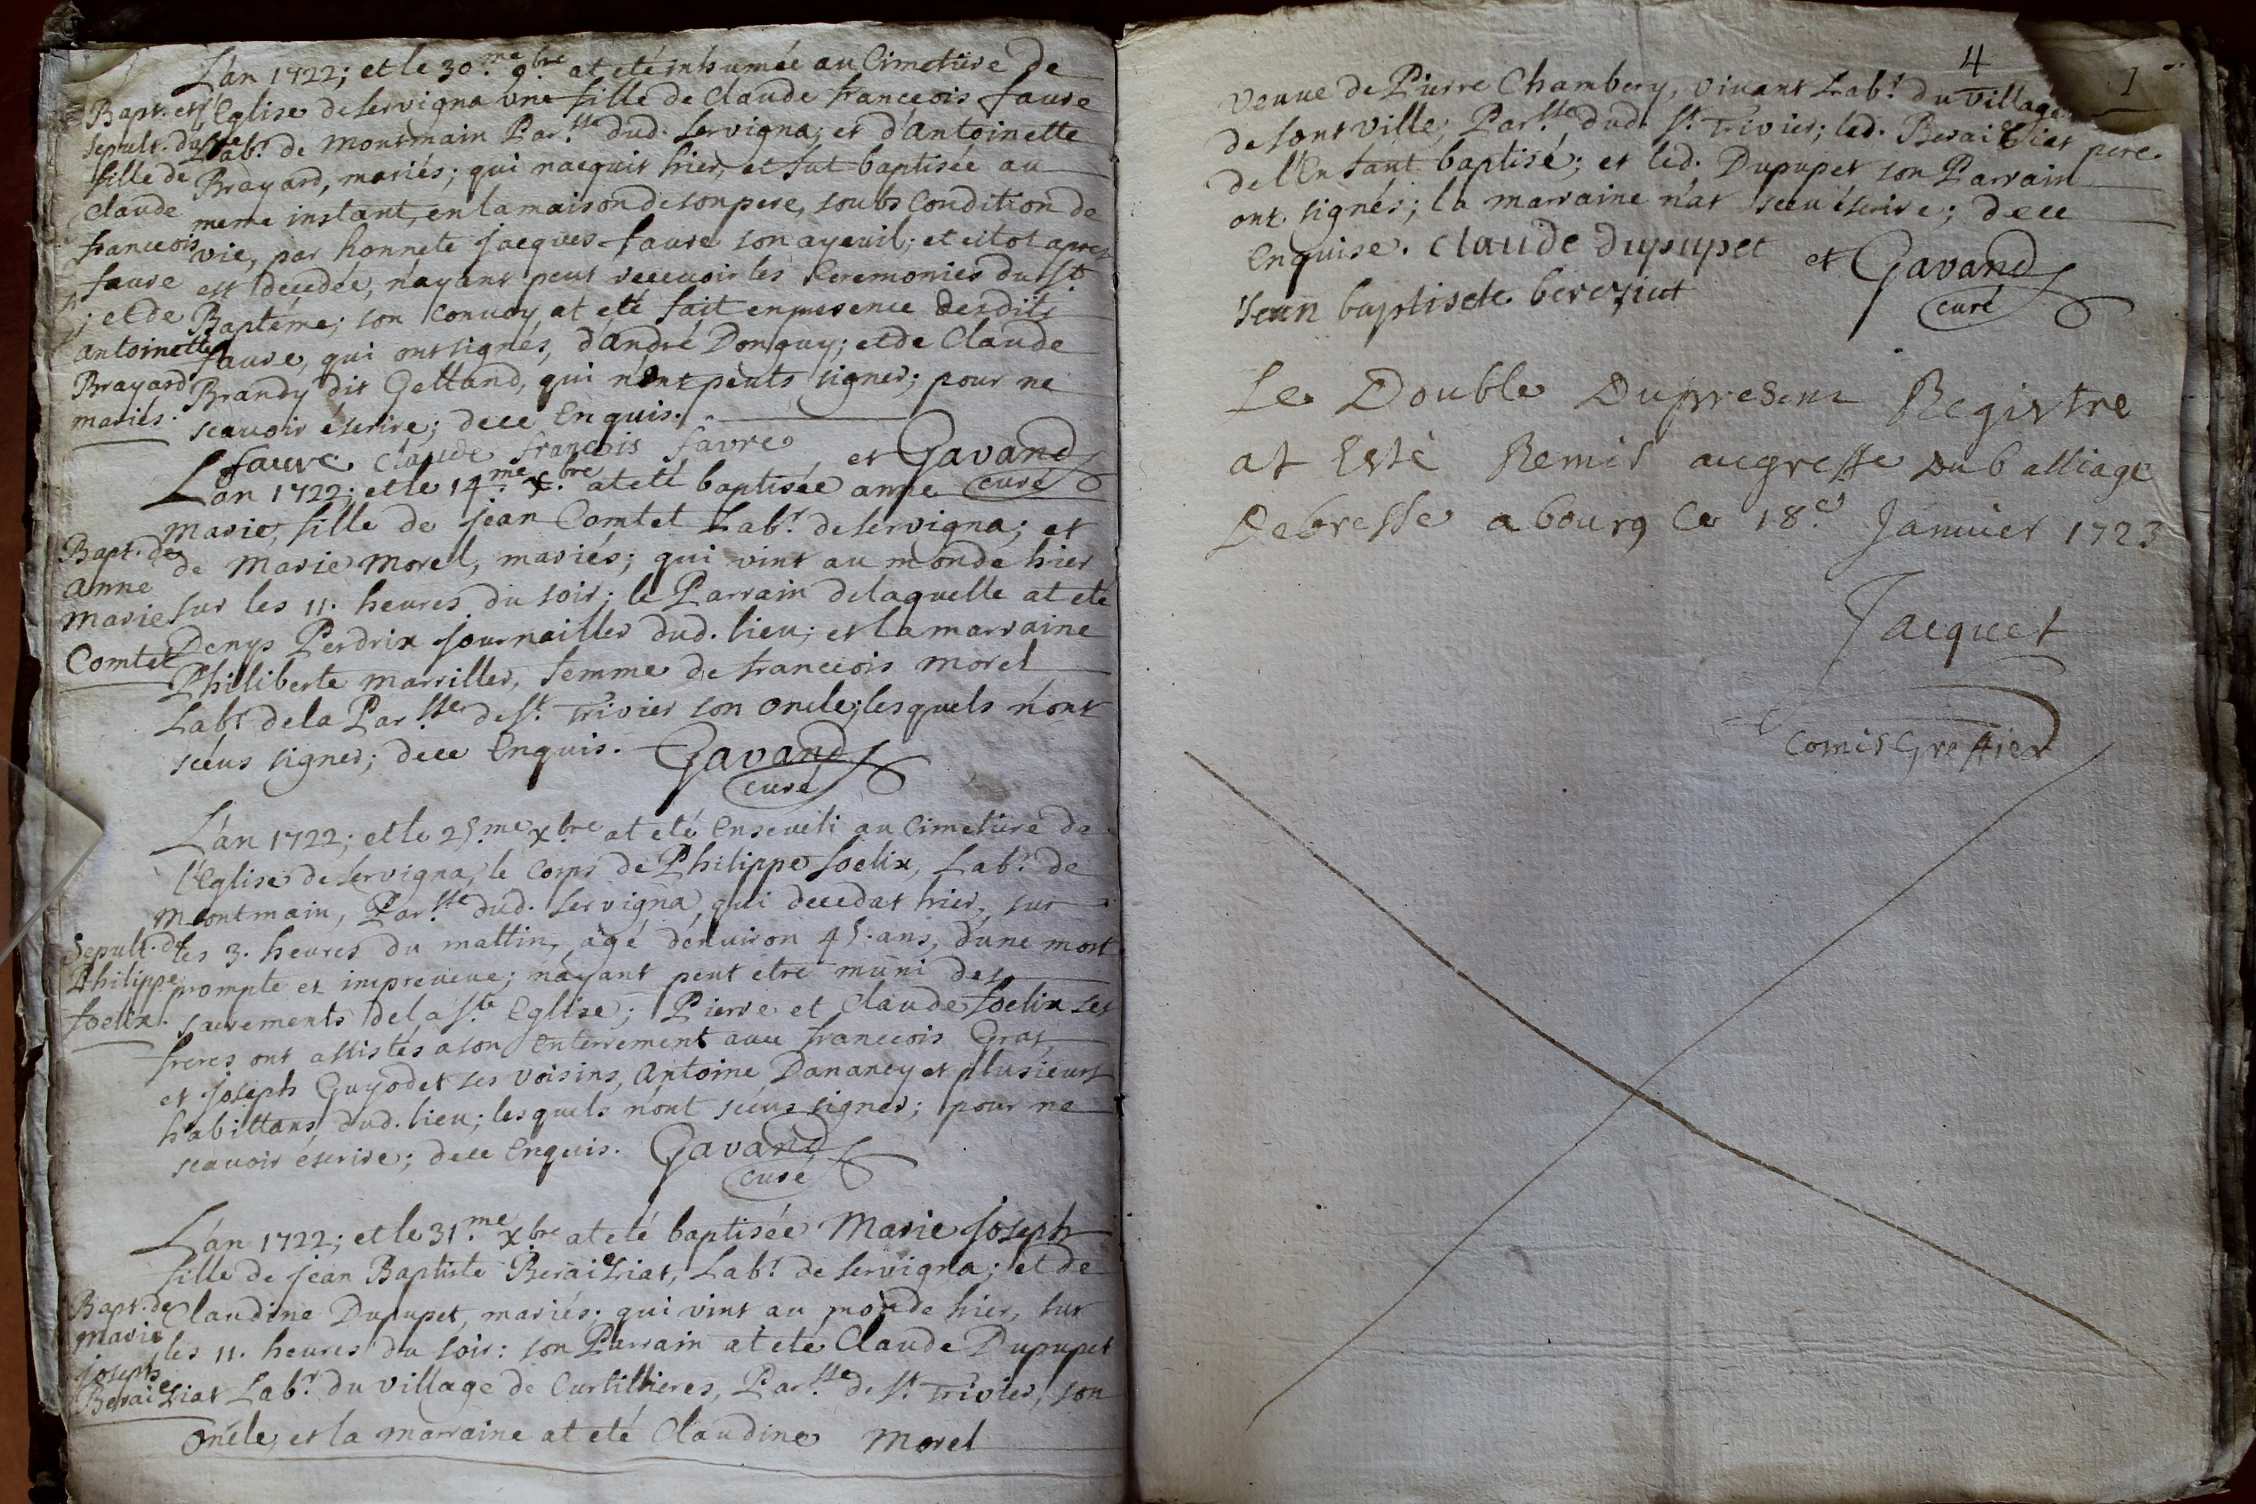 L'an 1722; et le 30.me 9.bre at eté inhumée au Cimetiere de
Bapt. et l'Eglise de servigna une fille de Claude francçois faure
sepult. du.ne Lab.r de montmain Par.sse dud. servigna; et d'Antoinette
fille de Brayard, mariés; qui nacquit hier, et fut baptisée au
Claude meme instant, en la maison de son pere, soubs Condition de
francçois vie, par honnete jacques faure son ayeuil; et citot apres
faure est décedée, n'ayant peut recevoir les Ceremonies du st
; et de Baptéme; son Convoy at eté fait en presence desdits
antoinette faure, qui ont signés, d'andré Donguy; et de Claude
Brayard Brandy dit Gelland, qui n'ont peuts signer; pour ne
mariés. scavoir éscrire; dece Enquis.
faure Claude francois favre et Gavand
curé
L'an 1722; et le 14.me x.bre at eté baptisée anne
Marie, fille de jean Comtet Lab.r de servigna; et
Bapt. de de Marie Morel, mariés; qui vint au monde hier
anne
marie sur les 11. heures du soir; le Parrain de laquelle at eté
Comtet Denys Perdrix journailler dud. lieu; et la marraine
Philiberte marriller, femme de francçois morel
Lab.r de la Par.sse de st. Trivier son oncle; lesquels n'ont
scéus signer; dece Enquis. Gavand
curé
L'an 1722; et le 25.me x.bre at eté Enseveli au Cimetiere de
l'Eglise de servigna, le Corps de Philippe foelix, Lab.r de
Montmain, Par.sse dud. servigna, qui decedat hier, sur
Sepult. de les 3. heures du mattin, agé d'enuiron 45. ans, d'une mort
Philippe prompte et impreveue; n'ayant peut etre muni des
foelix. sacrements de la s.te Eglise; Pierre et Claude foelix ses
freres ont assistés a son Enterrement avec francçois Gras,
et joseph Guyodet ses voisins, Antoine Dananey et plusieurs
habittans dud. lieu; lesquels n'ont scéus signer; pour ne
scavoir éscrire; dece Enquis. Gavand
curé
L'an 1722; et le 31.me x.bre at eté baptisée Marie Joseph
fille de jean Baptiste Beraiziat, Lab.r de servigna; et de
Bapt. de Claudine Dupupet, mariés; qui vint au monde hier, sur
marie les 11. heures du soir: son Parrain at eté Claude Dupupet
joseph
Beraiziat Lab.r du village de Curtillieres, Par.sse de st. Trivier, son
Oncle, et la marraine at eté Claudine Morel
4
1
veuve de Pierre Chambery, vivant Lab.r du village
de fontville; Par.sse dud. st. Trivier; led. Beraiziat pere
de l'Enfant baptisé; et led. Dupupet son Parrain
ont signés; la marraine n'at sceu éscrire; dece
Enquise. Claude dupupet et Gavand
Jean baptiste bereziat curé
Le Double Dupresent Registre
at Esté Remis augreffe Duballiage
Debresse a bourg Ce 18.e Janvier 1723
Jacquet
Comis Greffier